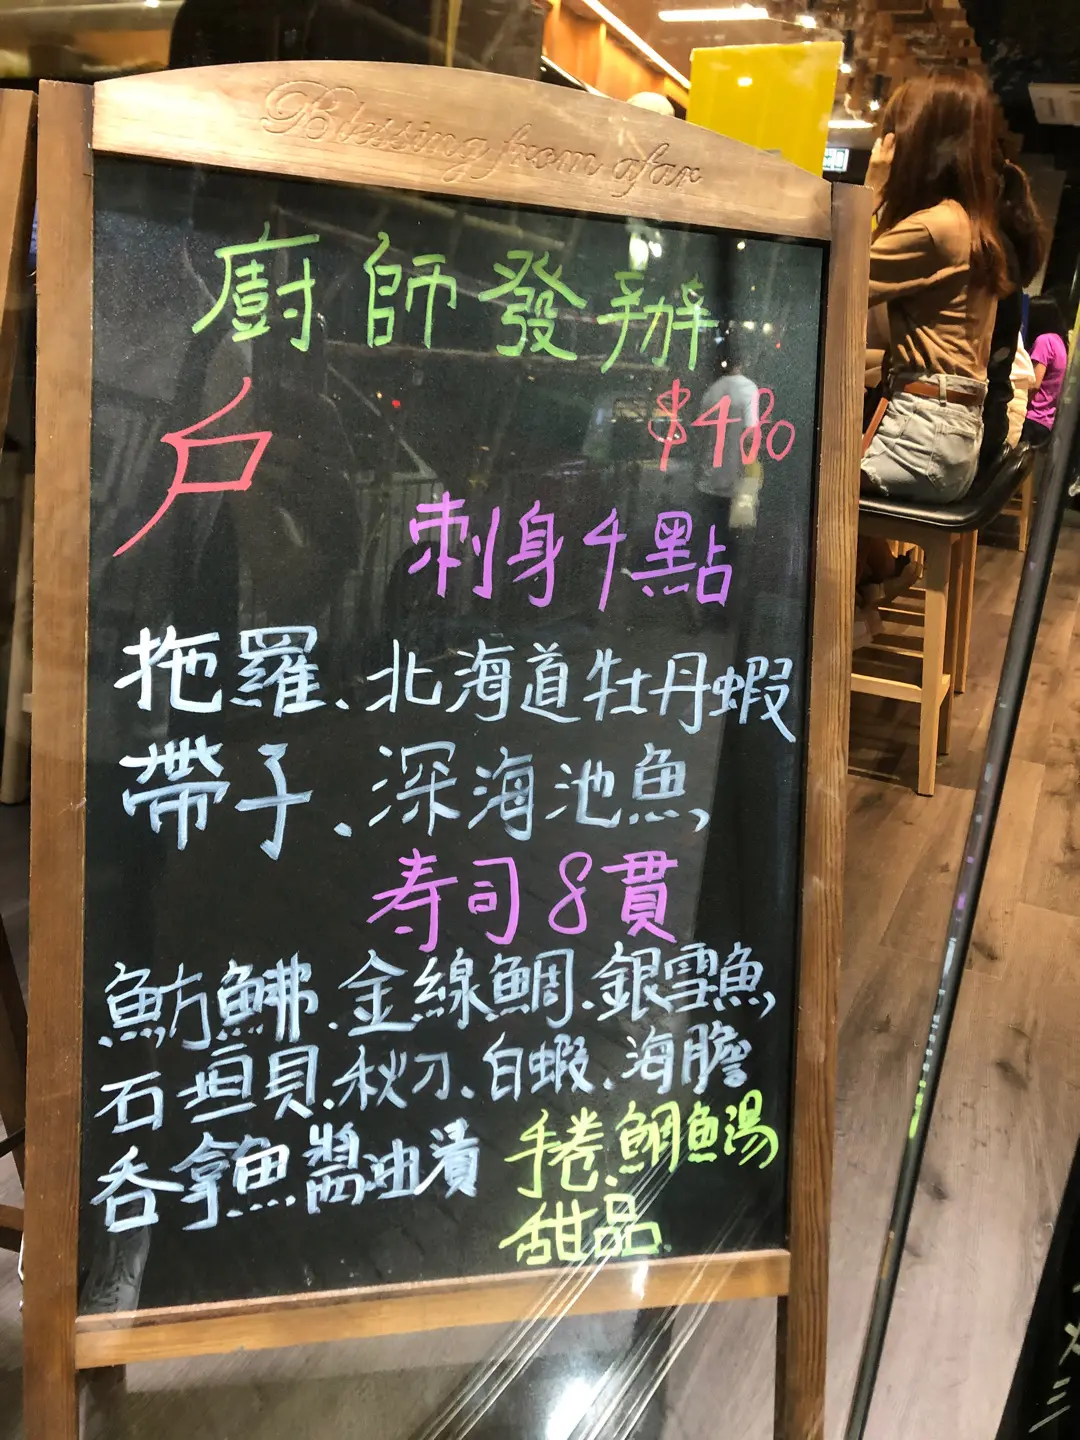 Blessing from afar
廚師發辦
戶 $480
刺身4點
拖羅、北海道牡丹蝦
帶子、深海池魚,
寿司8貫
魴鮄.金線鯛.銀雪魚,
石垣貝.秋刀.白蝦.海膽
吞拿魚醬油漬
手卷.鯛魚湯
甜品